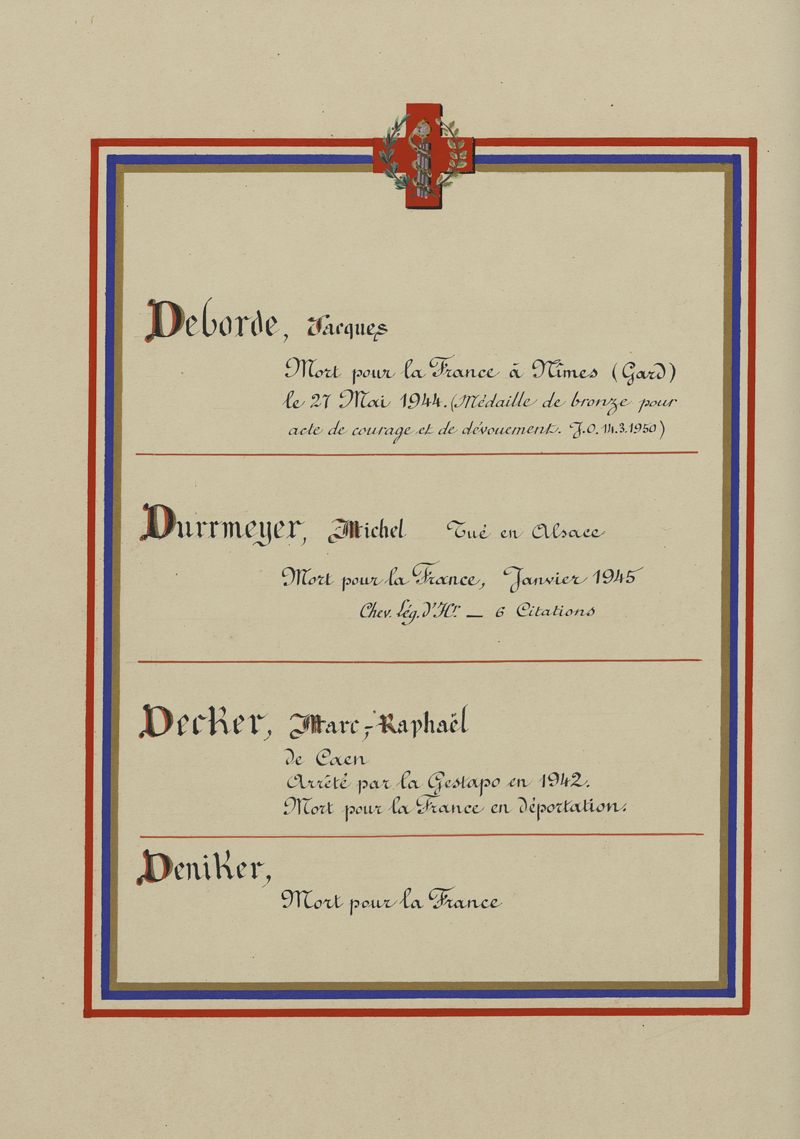 Deborde, Jacques
Mort pour la France à Nîmes (Gard)
le 27 Mai 1944. (Médaille de bronze pour
acte de courage et de dévouement. J.O. 14.3.1950)
Durrmeyer, Michel Tué en Alsace
Mort pour la France, Janvier 1945
Chev. Lég. d'Hr. — 6 Citations
Decker, Marc-Raphaël
de Caen
Arrêté par la Gestapo en 1942.
Mort pour la France en déportation.
Deniker,
Mort pour la France